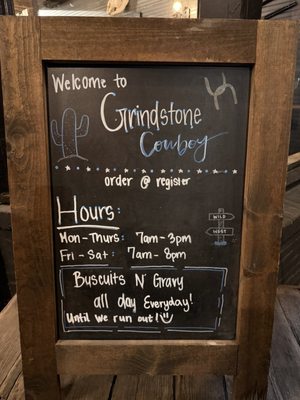 Welcome to
Grindstone
Cowboy
order @ register
Hours:
Mon-Thurs: 7am-3pm
Fri-Sat: 7am-8pm
WILD
WEST
Byscuits N' Gravy
all day Everyday!
Until we run out!